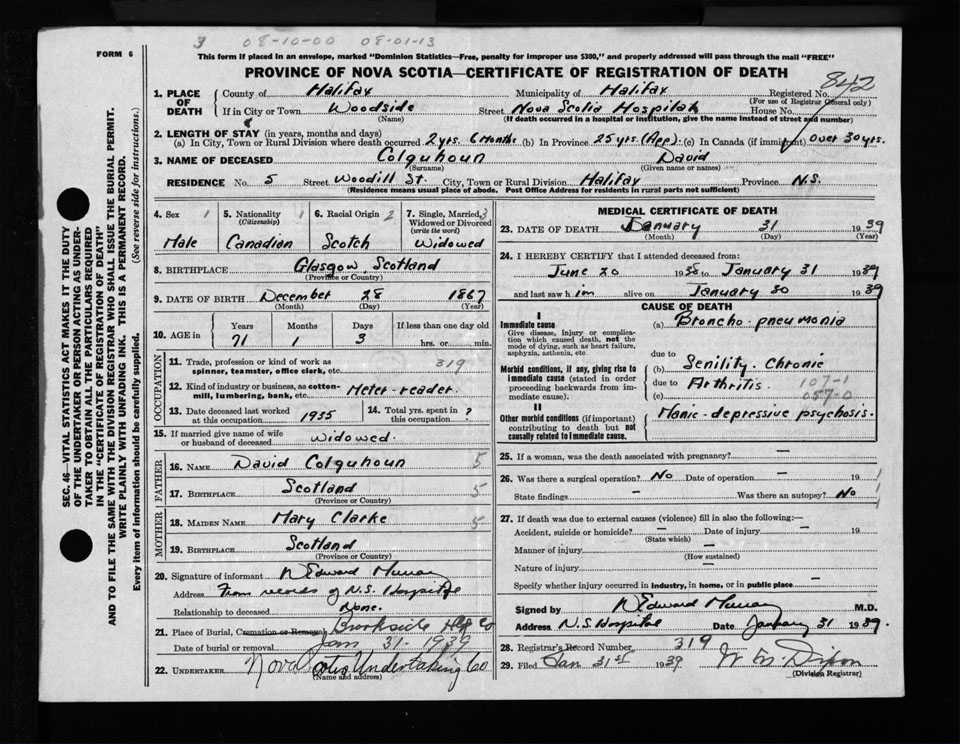 3 08-10-00 08-01-13
FORM 6
This form if placed in an envelope, marked "Dominion Statistics—Free, penalty for improper use $300," and properly addressed will pass through the mail "FREE"
PROVINCE OF NOVA SCOTIA—CERTIFICATE OF REGISTRATION OF DEATH
842
1. PLACE OF DEATH County of Halifax Municipality of Halifax Registered No.
(For use of Registrar General only)
If in City or Town Woodside Street Nova Scotia Hospital House No.
(Name) (If death occurred in a hospital or institution, give the name instead of street and number)
2. LENGTH OF STAY (in years, months and days)
(a) In City, Town or Rural Division where death occurred 2 yrs. 6 Months (b) In Province 25 yrs. (App) (c) In Canada (if immigrant) Over 30 yrs.
3. NAME OF DECEASED Colquhoun David
(Surname) (Given name or names)
RESIDENCE No. 5 Street Woodill St. City, Town or Rural Division Halifax Province N.S.
(Residence means usual place of abode. Post Office Address for residents in rural parts not sufficient)
SEC. 46—VITAL STATISTICS ACT MAKES IT THE DUTY
OF THE UNDERTAKER OR PERSON ACTING AS UNDER-
TAKER TO OBTAIN ALL THE PARTICULARS REQUIRED
IN THE "CERTIFICATE OF REGISTRATION OF DEATH"
AND TO FILE THE SAME WITH THE DIVISION REGISTRAR WHO SHALL ISSUE THE BURIAL PERMIT.
WRITE PLAINLY WITH UNFADING INK. THIS IS A PERMANENT RECORD.
Every item of information should be carefully supplied. (See reverse side for instructions.)
4. Sex 1 5. Nationality 1 6. Racial Origin 2 7. Single, Married, 3
(Citizenship) Widowed or Divorced
(write the word)
Male Canadian Scotch Widowed
8. BIRTHPLACE Glasgow, Scotland
(Province or Country)
9. DATE OF BIRTH December 28 1867
(Month) (Day) (Year)
10. AGE in Years Months Days If less than one day old
71 1 3 hrs. or min.
OCCUPATION
11. Trade, profession or kind of work as
spinner, teamster, office clerk, etc. 319
12. Kind of industry or business, as cotton-
mill, lumbering, bank, etc. Meter-reader.
13. Date deceased last worked
at this occupation 1935
14. Total yrs. spent in
this occupation ?
15. If married give name of wife
or husband of deceased Widowed.
FATHER
16. NAME David Colquhoun 5
17. BIRTHPLACE Scotland 5
(Province or Country)
MOTHER
18. MAIDEN NAME Mary Clarke 5
19. BIRTHPLACE Scotland
(Province or Country)
20. Signature of informant D Edward Murray
Address From records of N.S. Hospital
Relationship to deceased None.
21. Place of Burial, Cremation or Removal Brookside Hfx Co
Date of burial or removal Jan 31. 1939
22. UNDERTAKER Nova Scotia Undertaking Co
(Name and address)
MEDICAL CERTIFICATE OF DEATH
23. DATE OF DEATH January 31 1939
(Month) (Day) (Year)
24. I HEREBY CERTIFY that I attended deceased from:
June 20 1938 to January 31 1939
and last saw him alive on January 30 1939
CAUSE OF DEATH
I
Immediate cause
Give disease, injury or complica-
tion which caused death, not the
mode of dying, such as heart failure,
asphyxia, asthenia, etc.
(a) Broncho-pneumonia
due to
Morbid conditions, if any, giving rise to
immediate cause (stated in order
proceeding backwards from im-
mediate cause).
(b) Senility. Chronic
due to Arthritis. 107-1
(c) 057-0
II
Other morbid conditions (if important)
contributing to death but not
causally related to immediate cause.
Manic-depressive psychosis.
25. If a woman, was the death associated with pregnancy? —
26. Was there a surgical operation? No Date of operation — 19 1
State findings — Was there an autopsy? No 1
27. If death was due to external causes (violence) fill in also the following:—
Accident, suicide or homicide? — Date of injury — 19
(State which)
Manner of injury —
(How sustained)
Nature of injury —
Specify whether injury occurred in industry, in home, or in public place —
Signed by D Edward Murray M.D.
Address N.S. Hospital Date January 31 1939.
28. Registrar's Record Number 319
29. Filed Jan 31st 1939 W M Dixon
(Division Registrar)